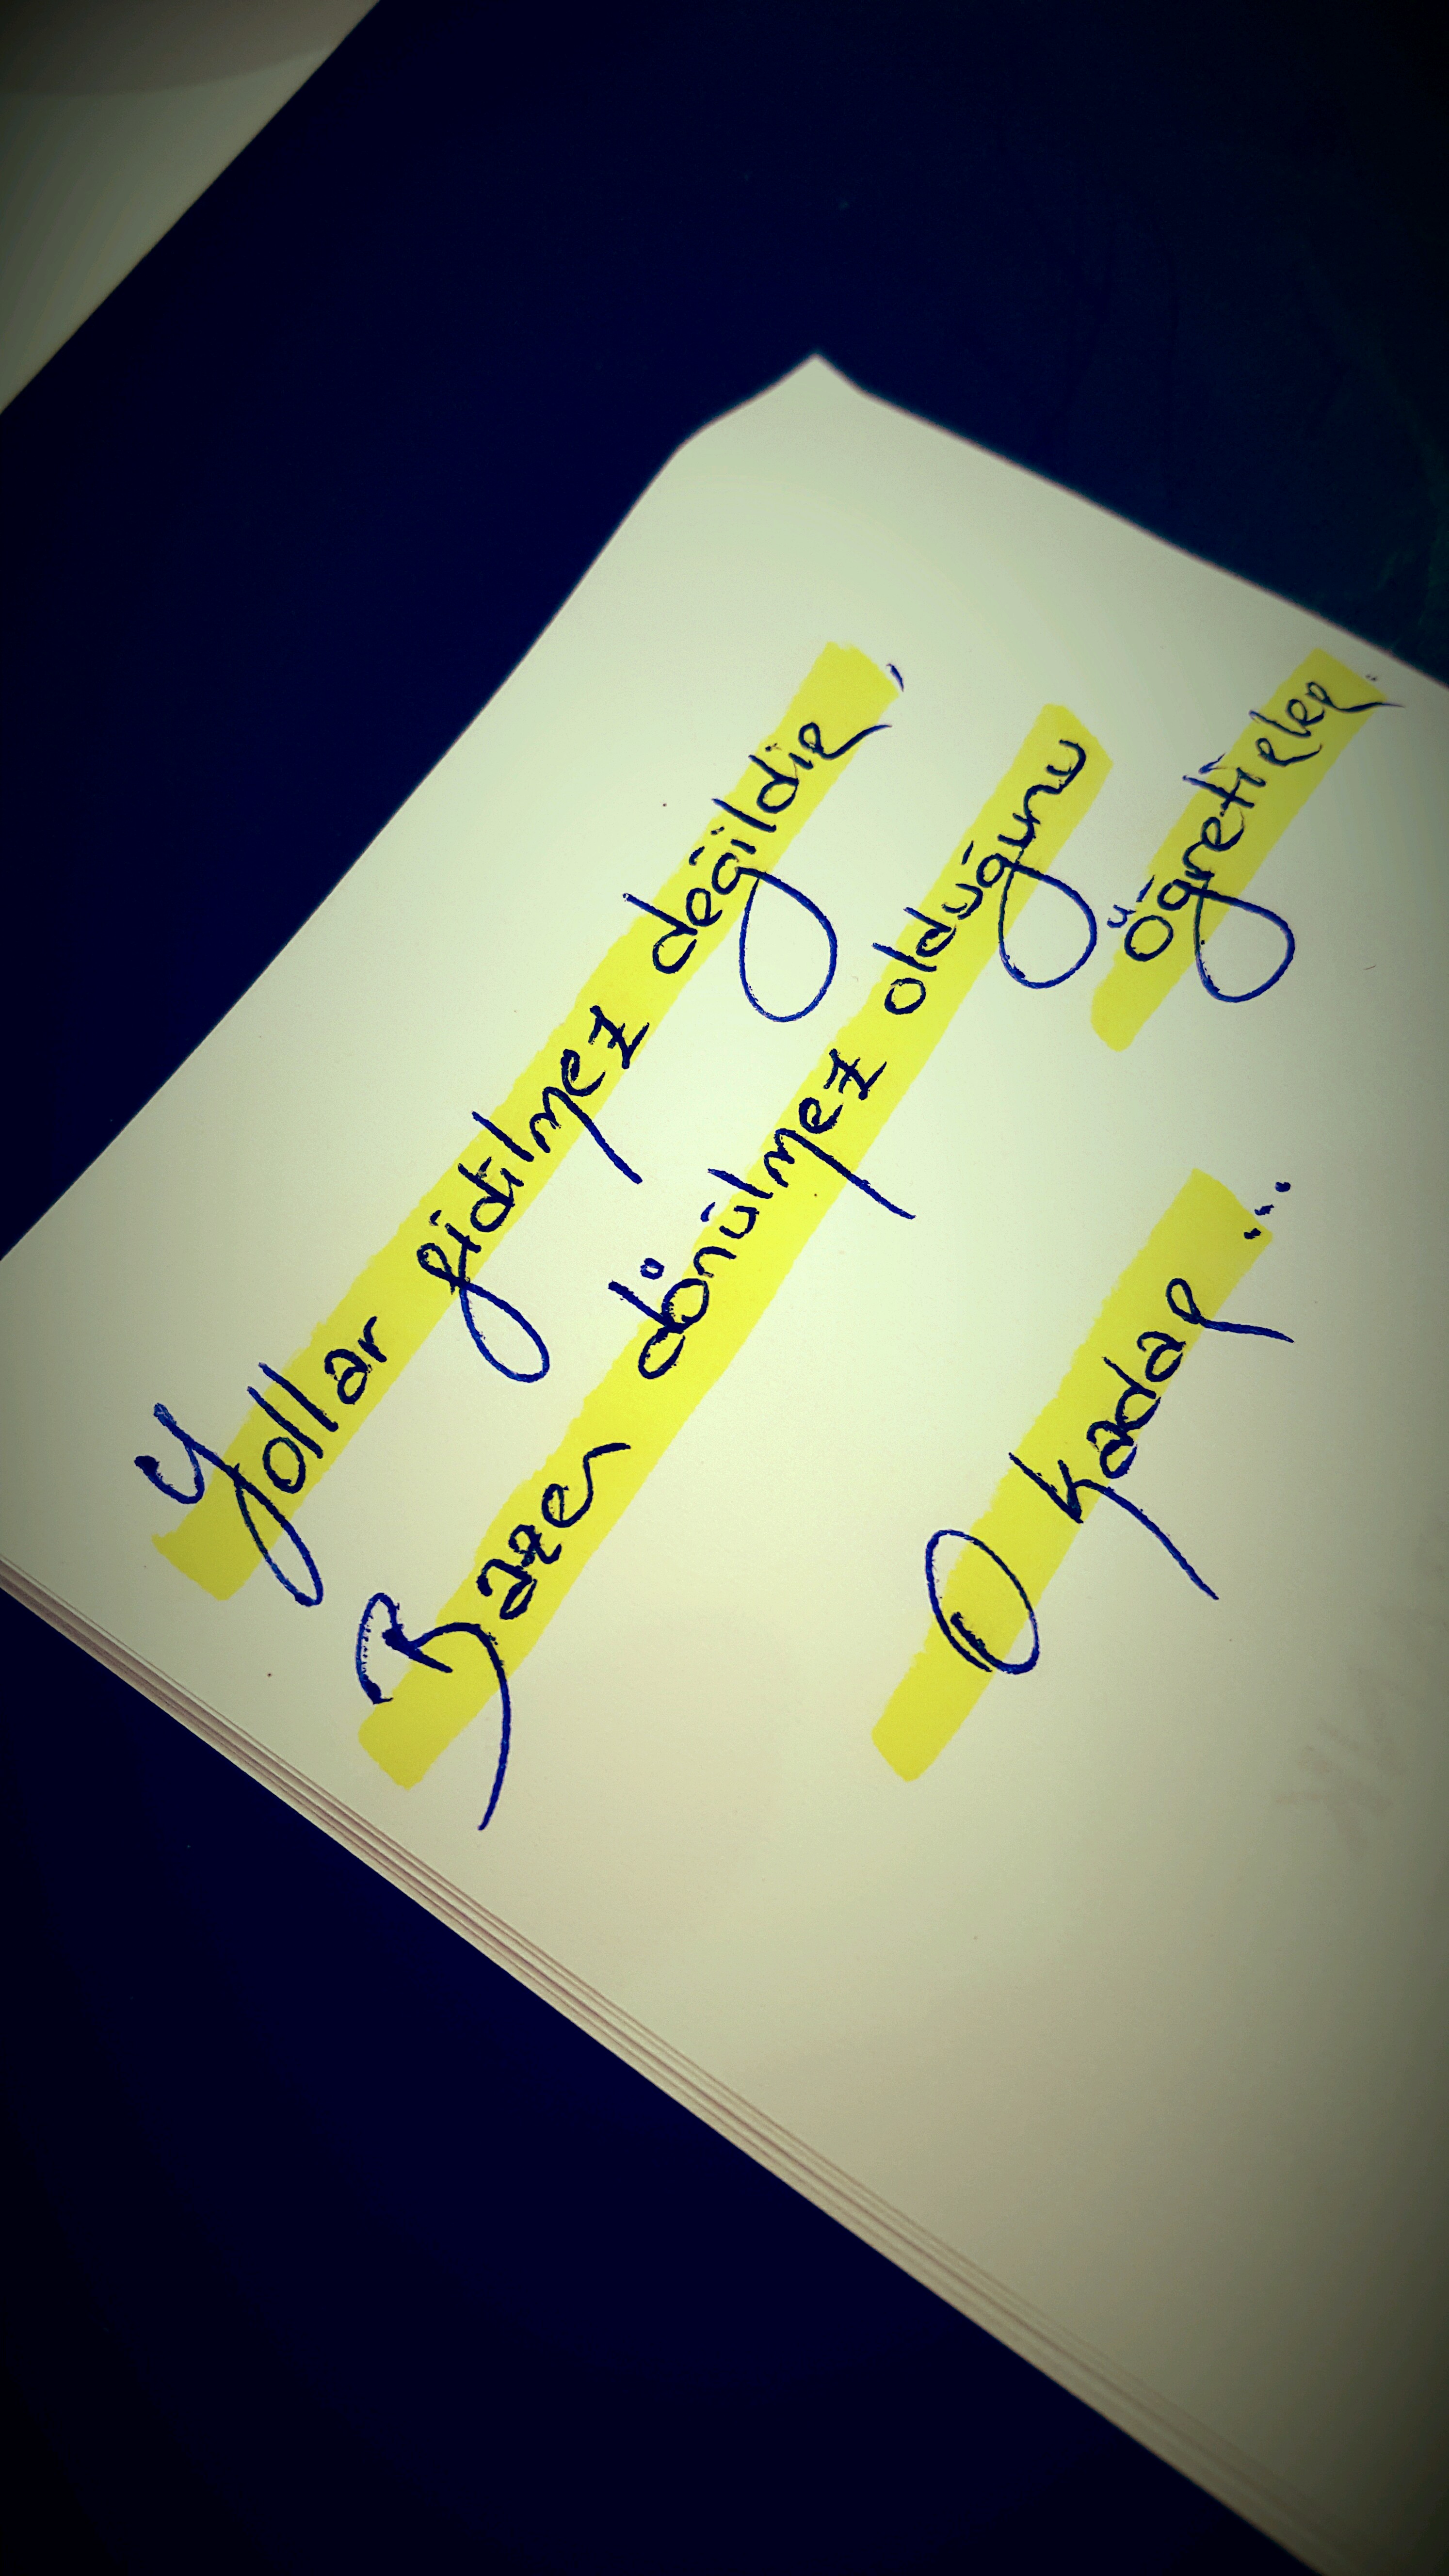 Yollar gidilmez değildir,
Bazen dönülmez olduğunu
öğretirler.
O kadar...